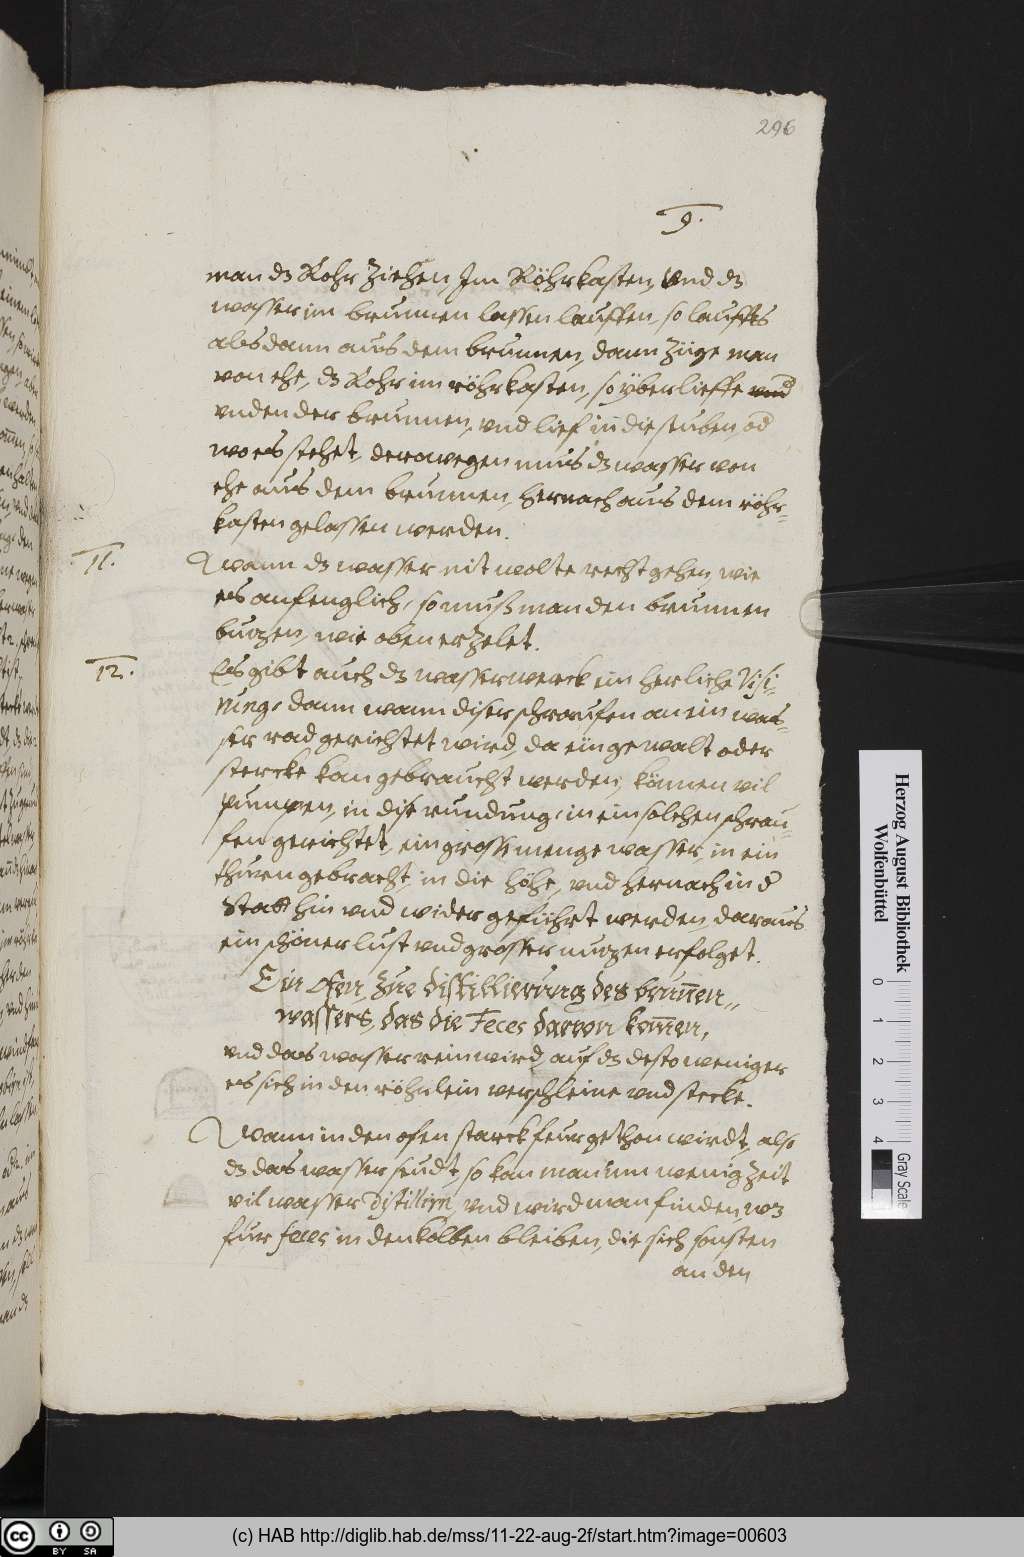 296
9.
man dz Rohr ziehen, Im Röhrkasten, vnd dz
wasser im brunnen lassen lauffen, so lauffts
alsdann aus dem brunnen, dann züge man
von ehe, dz Rohr im röhrkasten, so yberlieffe vnd
vnden der brunnen, vnd lief in die stuben, od
wo es stehet, derowegen mus dz wasser von
ehe aus dem brunnen, hernach aus dem röhr-
kasten gelassen werden.
11. Wann dz wasser nit wolte recht gehen, wie
es anfenglich, so muß man den brunnen
buzen, wie oben erzelet.
12. Es gibt auch dz wasserwerck ein herliche Visi-
rung, dann wann diser schraufen an ein was-
ser rad gerichtet wird, da ein gewalt oder
stercke kan gebraucht werden, können vil
pumpen, in dise rundung, in ein solchen schrau-
fen gerichtet, ein grosse menge wasser, in ein
thuren gebracht, in die höhe, vnd hernach in d
Statt hin vnd wider geführt werden, daraus
ein schöner lust vnd grosser nuzen erfolget.
Ein ofen, zue distillierung des brunnen-
wassers, das die Feces darvon komen,
vnd das wasser rein wird, auf dz desto weniger
es sich in den röhrlein verschleine vnd stecke.
Wann in den ofen starck feur gethon wirdt, also
dz das wasser seudt, so kan man inn wenig zeit
vil wasser distillirn, vnd wird man finden, wz
für feces in den kolben bleiben, die sich sonsten
an den
Herzog August Bibliothek
Wolfenbüttel
0 1 2 3 4
Gray Scale
cc BY SA
(c) HAB http://diglib.hab.de/mss/11-22-aug-2f/start.htm?image=00603